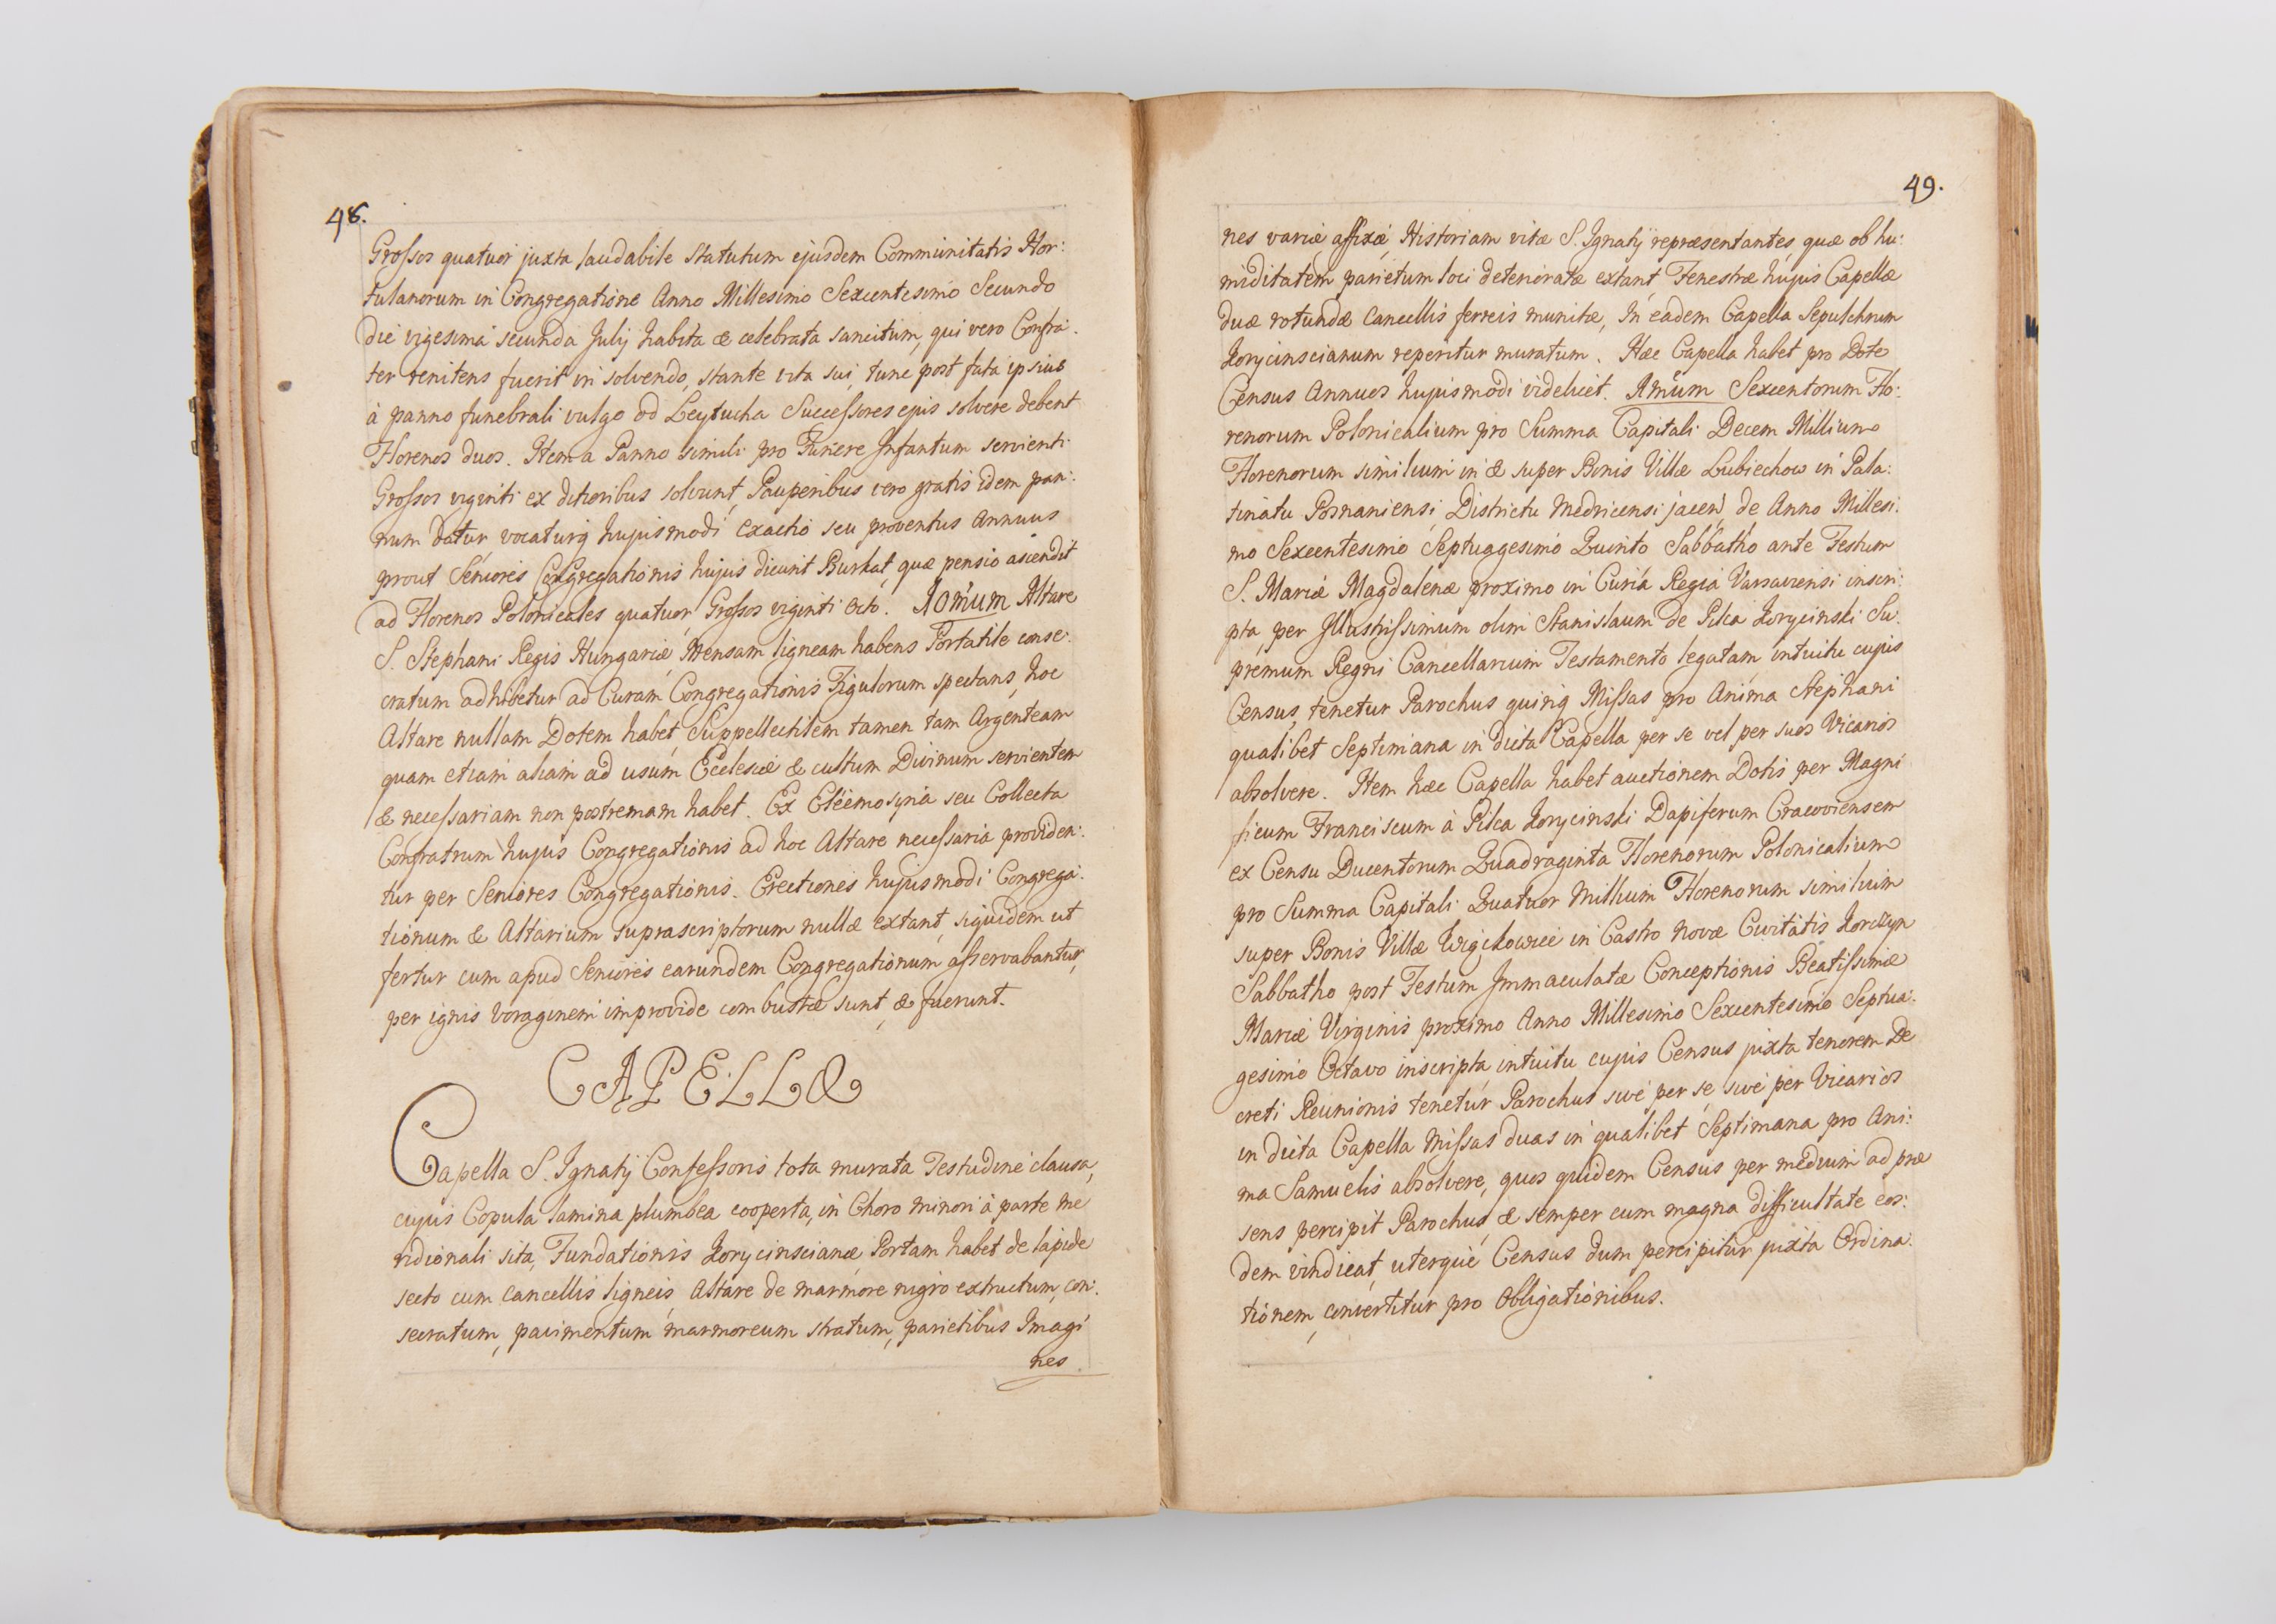 48.
Grossos quatuor juxta laudabile statutum ejusdem Communitatis Hor:
tulanorum in Congregatione Anno Millesimo Sexcentesimo Secundo
die vigesima secunda Julij habita & celebrata sancitum, qui vero Confra:
ter renitens fuerit in solvendo, stante vita sui, tunc post fata ipsius
à panno funebrali vulgo od Leytucha Successores ejus solvere debent
Florenos duos. Item a Panno simili pro Funere Infantum servienti
Grossos viginti ex ditioribus solvunt, Pauperibus vero gratis idem pan:
num datur vocaturq hujusmodi exactio seu proventus Annuus
prout Seniores Congregationis hujus dicunt Burkat, quæ pensio ascendit
ad Florenos Polonicales quatuor, Grossos viginti Octo. Altare
S. Stephani Regis Hungariæ, Mensam ligneam habens Portatile conse:
cratum adhibetur ad Curam Congregationis Figulorum spectans, hoc
Altare nullam Dotem habet, Suppellectilem tamen tam Argenteam
quam etiam aliam ad usum Ecclesiæ & cultum Divinum servientem
& necessariam non postremam habet. Ex Eleemosyna seu Collecta
Confratrum hujus Congregationis ad hoc Altare necessaria providen:
tur per Seniores Congregationis. Erectiones hujusmodi Congrega:
tionum & Altarium suprascriptorum nullæ extant, siquidem ut
fertur cum apud Seniores earundem Congregationum asservabantur,
per ignis voraginem improvide combustæ sunt, & fuerunt.
CAPELLÆ
Capella S. Ignatij Confessoris tota murata Testudine clausa,
cujus Copula lamina plumbea cooperta, in Choro minori à parte me
ridionali sita, Fundationis Korycinscianæ, Portam habet de lapide
secto cum cancellis ligneis, Altare de marmore nigro extructum, con:
secratum, pavimentum marmoreum stratum, parietibus Imagi
nes
49.
nes variæ affixæ, Historiam vitæ S. Ignatij repræsentantes, quæ ob hu:
miditatem parietum loci deterioratæ extant, Fenestræ hujus Capellæ
duæ rotundæ Cancellis ferreis munitæ, In eadem Capella Sepulchrum
Korycinscianum reperitur muratum. Hæc Capella habet pro Dote
Census Annuos hujusmodi videlicet. Sexcentorum Flo:
renorum Polonicalium pro Summa Capitali Decem Millium
Florenorum similium in & super Bonis Villæ Lubiechow in Pala:
tinatu Posnaniensi, Districtu Medricensi jacen, de Anno Millesi:
mo Sexcentesimo Septuagesimo Quinto Sabbatho ante Festum
S. Mariæ Magdalenæ proximo in Curia Regia Varsaviensi inscri:
pta, per Illustrissimum olim Stanislaum de Pilca Korycinski Su:
premum Regni Cancellarium Testamento legatam, intuitu cujus
Census, tenetur Parochus quinq Missas pro Anima Stephani
qualibet Septimana in dicta Capella per se vel per suos Vicarios
absolvere. Item hæc Capella habet auctionem Dotis per Magni
ficum Franciscum à Pilca Korycinski Dapiferum Cracoviensem
ex Censu Ducentorum Quadraginta Florenorum Polonicalium
pro Summa Capitali Quatuor Millium Florenorum similium
super Bonis Villæ in Castro Novæ Civitatis Korczyn
Sabbatho post Festum Immaculatæ Conceptionis Beatissimæ
Mariæ Virginis proximo Anno Millesimo Sexcentesimo Septua:
gesimo Octavo inscripta, intuitu cujus Census juxta tenorem De
creti Reunionis tenetur Parochus sive per se, sive per Vicarios
in dicta Capella Missas duas in qualibet Septimana pro Ani:
ma Samuelis absolvere, quos quidem Census per medium ad præ
sens percipit Parochus, & semper cum magna difficultate eos:
dem vindicat, uterque Census dum percipitur juxta Ordina:
tionem, convertitur pro Obligationibus.